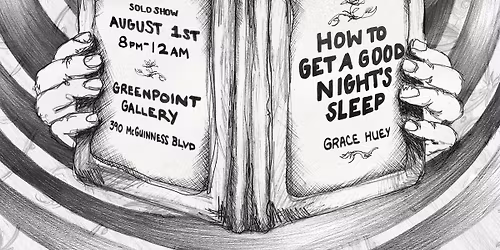 SOLO SHOW
AUGUST 1ST
8PM-12AM
GREENPOINT
GALLERY
390 McGUINNESS BLVD
HOW TO
GET A GOOD
NIGHT'S
SLEEP
GRACE HUEY